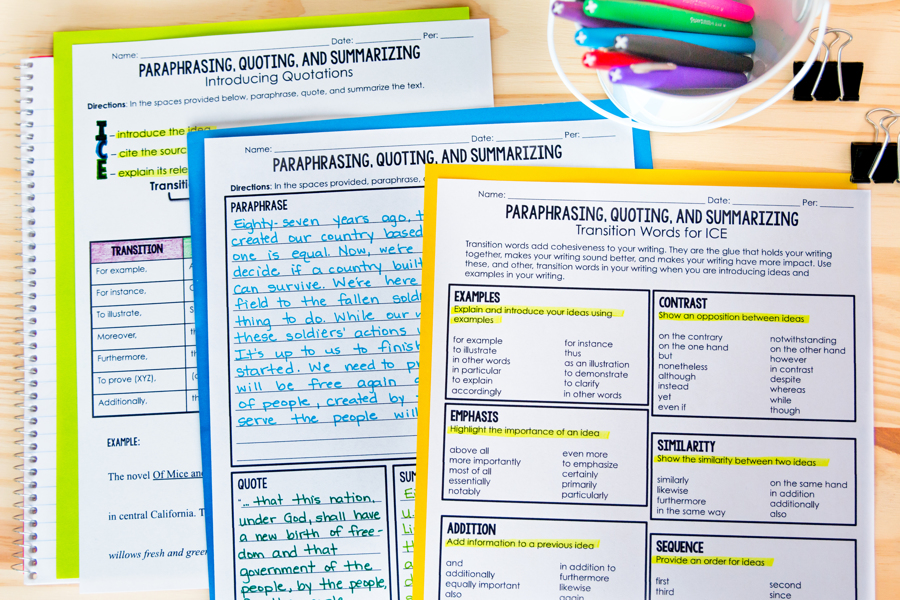 Name: Date: Per:
PARAPHRASING, QUOTING, AND SUMMARIZING
Introducing Quotations
Directions: In the spaces provided below, paraphrase, quote, and summarize the text.
I – introduce the idea
C – cite the sourc
E – explain its rele
Transiti
TRANSITION
For example,
For instance,
To illustrate,
Moreover,
Furthermore,
To prove (XYZ),
Additionally,
EXAMPLE:
The novel Of Mice and
in central California. T
willows fresh and green
Name: Date: Per:
PARAPHRASING, QUOTING, AND SUMMARIZING
Directions: In the spaces provided, paraphrase,
PARAPHRASE
Eighty-seven years ago,
created our country based
one is equal. Now, we're
decide if a country built
can survive. We're here
field to the fallen sold
thing to do. While our
these soldiers' actions
It's up to us to finish
started. We need to
will be free again
of people, created by
serve the people will
QUOTE
"...that this nation,
under God, shall have
a new birth of free-
dom and that
government of the
people, by the people,
SUM
Name: Date: Per:
PARAPHRASING, QUOTING, AND SUMMARIZING
Transition Words for ICE
Transition words add cohesiveness to your writing. They are the glue that holds your writing
together, makes your writing sound better, and makes your writing have more impact. Use
these, and other, transition words in your writing when you are introducing ideas and
examples in your writing.
EXAMPLES
Explain and introduce your ideas using
examples
for example
to illustrate
in other words
in particular
to explain
accordingly
for instance
thus
as an illustration
to demonstrate
to clarify
in other words
CONTRAST
Show an opposition between ideas
on the contrary
on the one hand
but
nonetheless
although
instead
yet
even if
notwithstanding
on the other hand
however
in contrast
despite
whereas
while
though
EMPHASIS
Highlight the importance of an idea
above all
more importantly
most of all
essentially
notably
even more
to emphasize
certainly
primarily
particularly
SIMILARITY
Show the similarity between two ideas
similarly
likewise
furthermore
in the same way
on the same hand
in addition
additionally
also
ADDITION
Add information to a previous idea
and
additionally
equally important
also
in addition to
furthermore
likewise
again
SEQUENCE
Provide an order for ideas
first
third
second
since